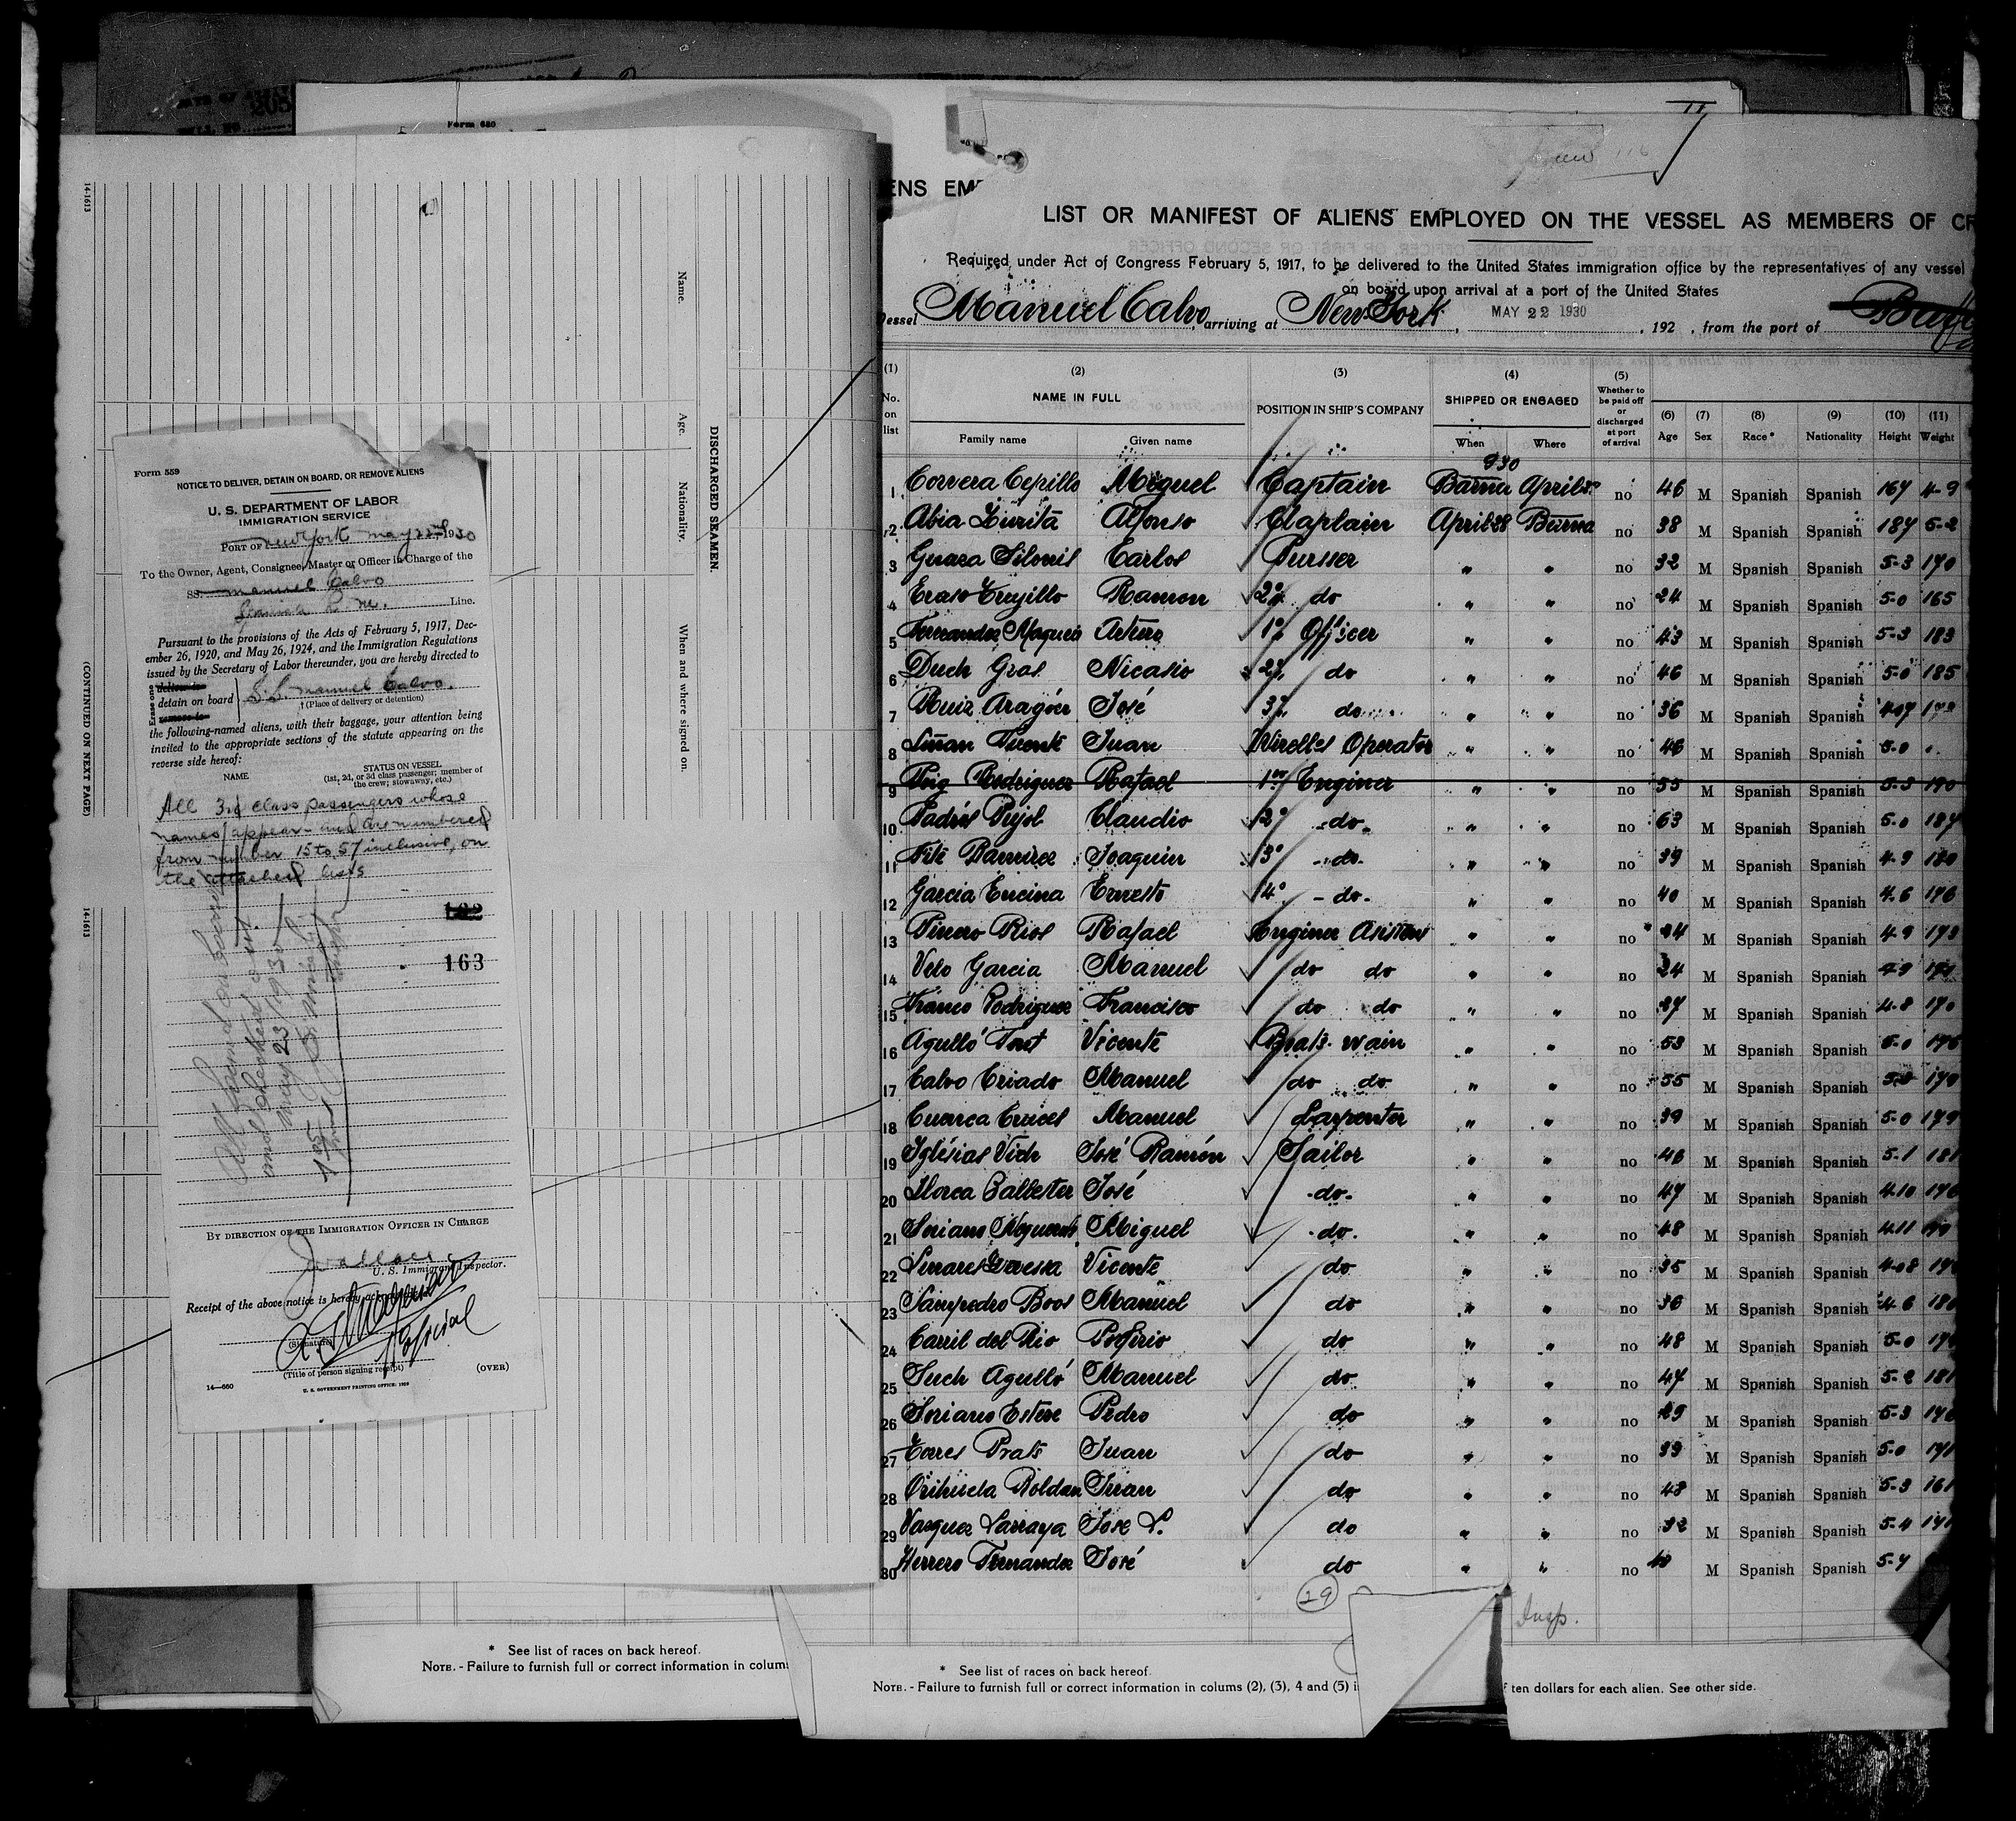 Form 680
14-1613
Name.
Age.
Nationality.
When and where signed on.
DISCHARGED SEAMEN.
(CONTINUED ON NEXT PAGE)
14-1613
Form 559
NOTICE TO DELIVER, DETAIN ON BOARD, OR REMOVE ALIENS
U. S. DEPARTMENT OF LABOR
IMMIGRATION SERVICE
PORT OF New York May 22nd 1930
To the Owner, Agent, Consignee, Master or Officer in Charge of the
SS. Manuel Calvo
Line.
Pursuant to the provisions of the Acts of February 5, 1917, Dec-
ember 26, 1920, and May 26, 1924, and the Immigration Regulations
issued by the Secretary of Labor thereunder, you are hereby directed to
Erase one
deliver to
detain on board S.S. Manuel Calvo.
† (Place of delivery or detention)
remove to
the following-named aliens, with their baggage, your attention being
invited to the appropriate sections of the statute appearing on the
reverse side hereof:
NAME
STATUS ON VESSEL
(1st, 2d, or 3d class passenger; member of
the crew; stowaway, etc.)
All 3rd class passengers whose
names appear and are numbered
from number 15 to 57 inclusive, on
the attached lists
163
All found on board
and checked out
May 23/1930
BY DIRECTION OF THE IMMIGRATION OFFICER IN CHARGE
Wallace
U. S. Immigrant Inspector.
Receipt of the above notice is hereby
(Signature)
(Title of person signing receipt)
(OVER)
14—660
U. S. GOVERNMENT PRINTING OFFICE: 1929
ENS EM
LIST OR MANIFEST OF ALIENS EMPLOYED ON THE VESSEL AS MEMBERS OF CR
Required under Act of Congress February 5, 1917, to be delivered to the United States immigration office by the representatives of any vessel
on board upon arrival at a port of the United States
Vessel Manuel Calvo, arriving at New York, MAY 22 1930, 192 , from the port of
(1) No. on list
(2) NAME IN FULL
Family name Given name
(3) POSITION IN SHIP'S COMPANY
(4) SHIPPED OR ENGAGED
When Where
(5) Whether to be paid off or discharged at port of arrival
(6) Age (7) Sex (8) Race * (9) Nationality (10) Height (11) Weight
930
1 Corvera Cepillo Miguel Captain Barna April no 46 M Spanish Spanish 167 4-9
2 Abia Zurita Alfonso Claplain April 28 Barna no 38 M Spanish Spanish 187 5-2
3 Guaza Silonis Carlos Pursser " " no 32 M Spanish Spanish 5-3 170
4 Eraso Trujillo Ramon 2º do " " no 24 M Spanish Spanish 5-0 165
5 Fernandez Arturo 1º Officer " " no 43 M Spanish Spanish 5-3 183
6 Duch Gras Nicasio 2º do " " no 46 M Spanish Spanish 5-0 185
7 Ruiz Aragón José 3º do " " no 36 M Spanish Spanish
8 Vicente Juan Wireless Operator " " no 46 M Spanish Spanish 5-0
9 Puig Rodriguez Rafael 1er Enginer " " no 55 M Spanish Spanish 5-3 190
10 Padrós Pujol Claudio 2º do. " " no 63 M Spanish Spanish 5-0 187
11 Ramirez Joaquin 3º do. " " no 39 M Spanish Spanish 4-9 180
12 Garcia Encina Ernesto 4º do. " " no 40 M Spanish Spanish 4-6 176
13 Piñero Rios Rafael Enginer Asistan " " no 24 M Spanish Spanish 4-9 173
14 Velo Garcia Manuel do do " " no 24 M Spanish Spanish 4-9
15 Franco Rodriguez Francisco do do " " no 27 M Spanish Spanish 4-8 170
16 Agulló Font Vicente Boats wain " " no 53 M Spanish Spanish 5-0 175
17 Calvo Criado Manuel do do " " no 55 M Spanish Spanish 170
18 Cuenca Manuel Carpenter " " no 39 M Spanish Spanish 5-0 179
19 Iglésias Vich José Ramón Sailor " " no 46 M Spanish Spanish 5-1 181
20 Llorca Ballester José do. " " no 47 M Spanish Spanish 4-10 176
21 Soriano Miguel do. " " no 48 M Spanish Spanish 4-11
22 Linares Vicente do " " no 35 M Spanish Spanish 4-08
23 Sampedro Boos Manuel do " " no 36 M Spanish Spanish 4-6 180
24 Carril del Rio Porfirio do " " no 48 M Spanish Spanish 5-0
25 Such Agulló Manuel do " " no 47 M Spanish Spanish 5-2 181
26 Soriano Esteve Pedro do " " no M Spanish Spanish 5-3
27 Torres Prats Juan do " " no 39 M Spanish Spanish 5-0 171
28 Orihuela Roldan Juan do " " no 48 M Spanish Spanish 5-3 161
29 Vasquez Larraya Jose L. do " " no 32 M Spanish Spanish 5-4 171
30 Herrero Fernandez José do " " no 40 M Spanish Spanish 5-7
29
Insp.
* See list of races on back hereof.
NOTE. - Failure to furnish full or correct information in colums
* See list of races on back hereof.
NOTE. - Failure to furnish full or correct information in colums (2), (3), 4 and (5) i
f ten dollars for each alien. See other side.